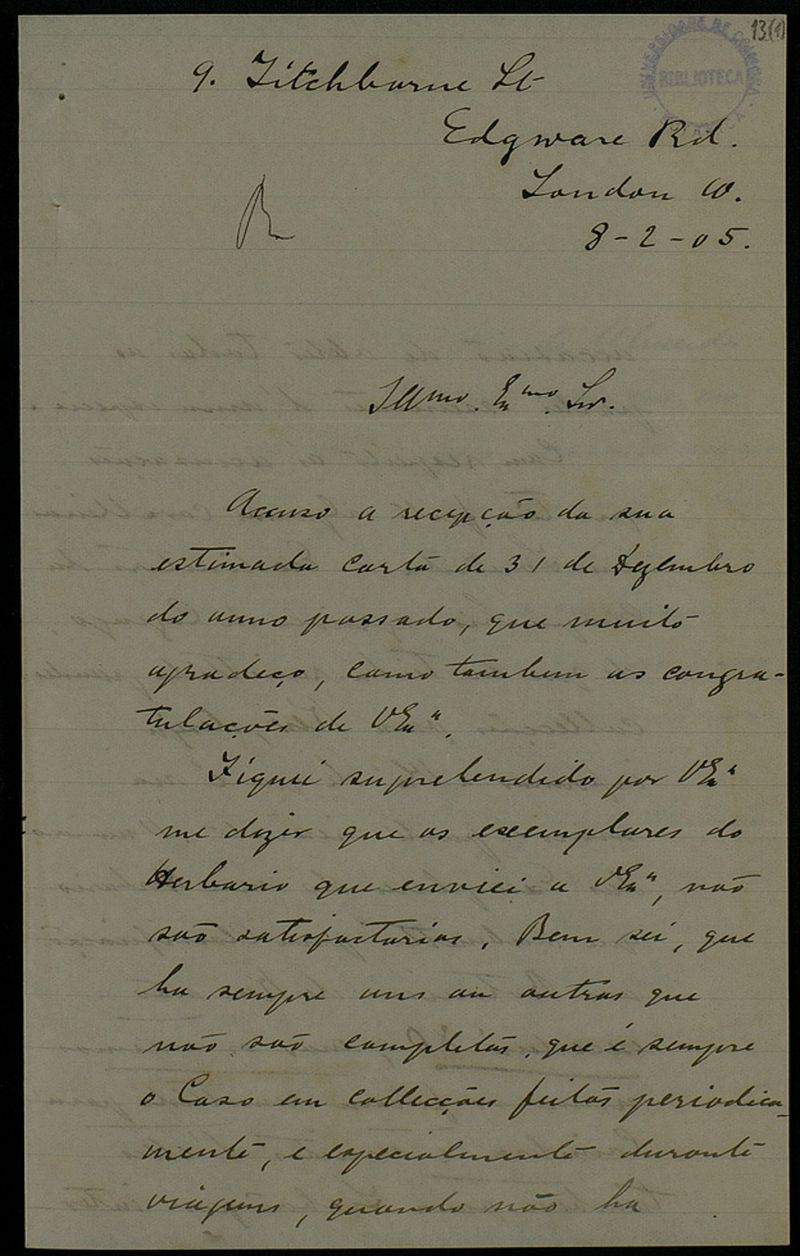 13(1)
UNIVERSIDADE DE COIMBRA
BIBLIOTECA
9. Titchborne St
Edgware Rd.
London W.
R
8-2-05.
Illmo. Exmo. Snr.
Accuso a recepção da sua
estimada carta de 31 de Dezembro
do anno passado, que muito
agradeço, como tambem as congra-
tulações de VExa.
Fiquei suprehendido por VExa
me dizer que os exemplares do
Herbario que enviei a VExa, não
são satisfactorios. Bem sei, que
ha sempre uns ou outros que
não são completos, que é sempre
o Caso em collecções feitas periodica-
mente, e especialmente durante
viagens, quando não ha